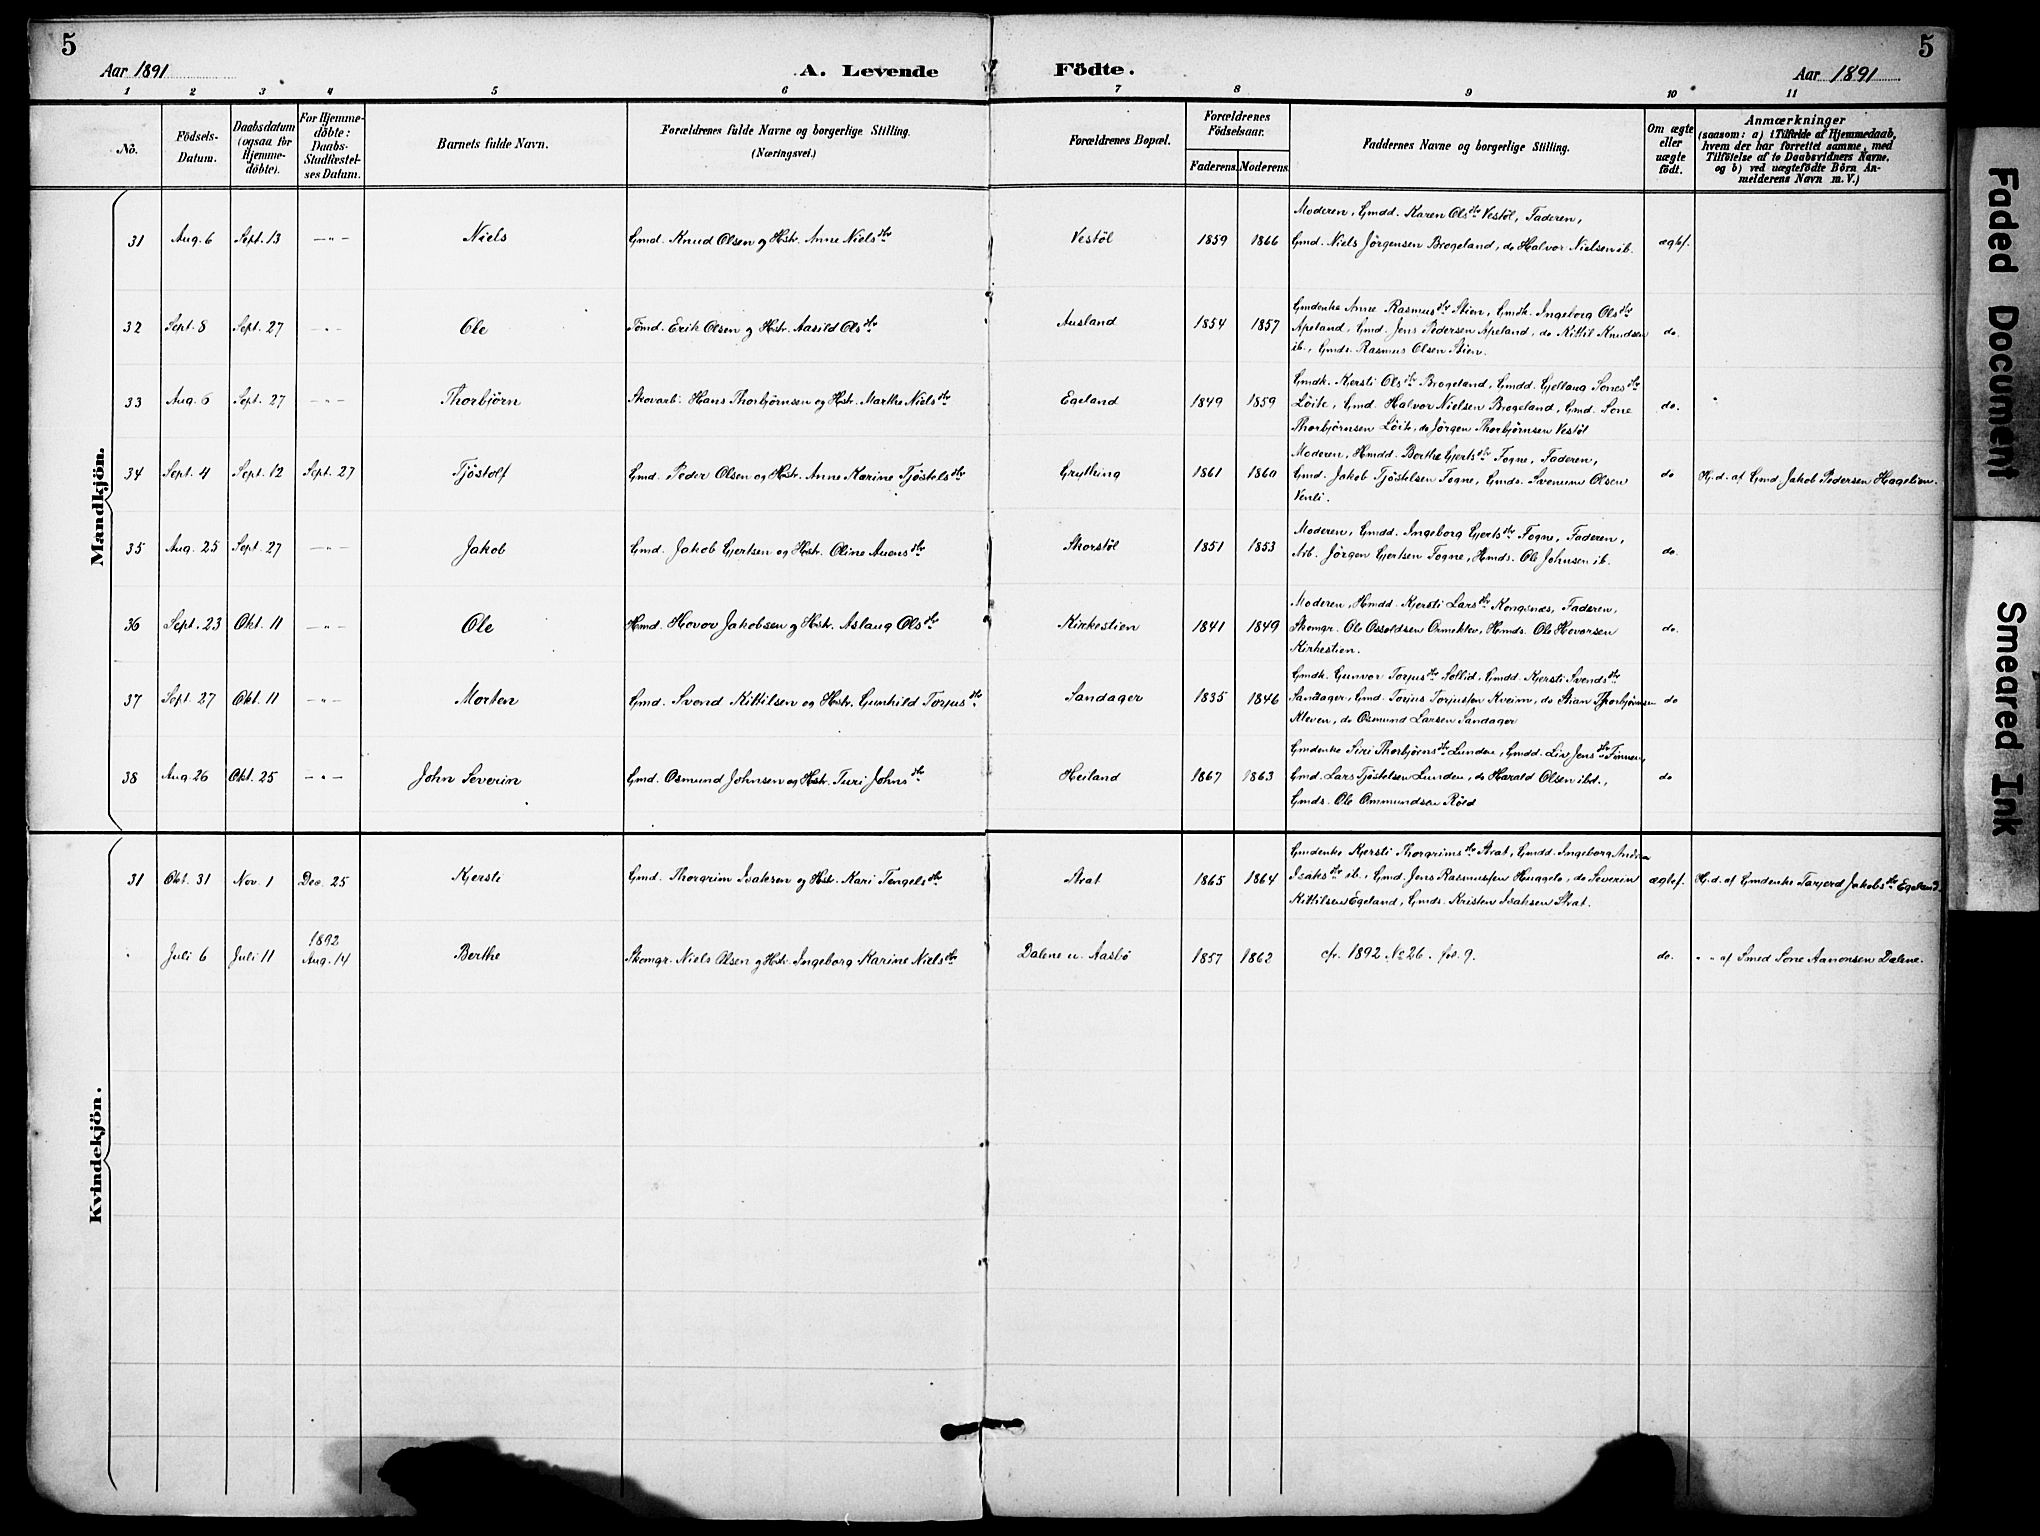 5
5
Aar 1891
A. Levende
Födte.
Aar 1891
1 2 3 4 5 6 7 8 9 10 11
No.
Födsels-
Datum.
Daabsdatum
(ogsaa for
Hjemme-
döbte).
For Hjemme-
döbte:
Daabs-
Stadfæstel-
ses Datum.
Barnets fulde Navn.
Forældrenes fulde Navne og borgerlige Stilling.
(Næringsvei.)
Forældrenes Bopæl.
Forældrenes
Födselsaar.
Faderens. Moderens.
Faddernes Navne og borgerlige Stilling.
Om ægte
eller
uægte
födt.
Anmærkninger
(saasom: a) i Tilfælde af Hjemmedaab,
hvem der har forrettet samme, med
Tilföielse af to Daabsvidners Navne,
og b) ved uægtefödte Börn An-
melderens Navn m. V.)
Mandkjön.
Moderen, Gmdd. Karen Olsdtr Vestöl, Faderen,
31 Aug. 6 Sept. 13 -"- Niels Gmd. Knud Olsen og Hstr. Anne Nielsdtr Vestöl 1859 1866 Gmd. Niels Jörgensen Brogeland, do Halvor Nielsen ib. ægtef.
Gmdenke Anne Rasmusdtr Stien, Gmdk. Ingeborg Olsdtr
32 Sept. 8 Sept. 27 -"- Ole Tömd. Erik Olsen og Hstr. Aasild Olsdtr Ausland 1854 1857 Apeland, Gmd. Jens Pedersen Apeland, do Kittil Knudsen do.
ib., Gmds. Rasmus Olsen Stien.
Gmdk. Kersti Olsdtr Brogeland, Gmdd. Gjellaug Sonesdtr
33 Aug. 6 Sept. 27 -"- Thorbjörn Skovarb. Hans Thorbjörnsen og Hstr. Marthe Nielsdtr Egeland 1849 1859 Löite, Gmd. Halvor Nielsen Brogeland, Gmd. Sone do.
Thorbjörnsen Löite, do Jörgen Thorbjörnsen Vestöl
Moderen, Hmdd. Berthe Gjertsdtr Fogne, Faderen,
34 Sept. 4 Sept. 12 Sept. 27 Tjöstolf Gmd. Peder Olsen og Hstr. Anne Karine Tjöstelsdtr Gryting 1861 1860 Gmd. Jakob Tjöstelsen Fogne, Gmds. Svenum Olsen do H.d. af Gmd. Jakob Pedersen Hagelien.
Venli.
Moderen, Gmdd. Ingeborg Gjertsdtr Fogne, Faderen,
35 Aug. 25 Sept. 27 -"- Jakob Gmd. Jakob Gjertsen og Hstr. Oline Auensdtr Skorstöl 1851 1853 Arb. Jörgen Gjertsen Fogne, Hmds. Ole Johnsen ib. do.
Moderen, Hmdd. Kjersti Larsdtr Kongsnæs, Faderen,
36 Sept. 23 Okt. 11 -"- Ole Hmd. Hovor Jakobsen og Hstr. Aslaug Olsdtr Kirkestien 1841 1849 Skomgr. Ole Ossoldsen Ormeklev, Hmds. Ole Hovorsen do.
Kirkestien.
Gmdk. Gunvor Torjusdtr Sollid, Gmdd. Kjersti Svendsdtr
37 Sept. 27 Okt. 11 -"- Morten Gmd. Svend Kittilsen og Hstr. Gunhild Torjusdtr Sandager 1835 1846 Sandager, Gmd. Torjus Torjussen Kveim, do Stian Thorbjörnsen do
Kleven, do Osmund Larsen Sandager
Gmdenke Siri Thorbjörnsdtr Lunden, Gmdd. Liv Jensdtr Finnem,
38 Aug. 26 Okt. 25 -"- John Severin Gmd. Osmund Johnsen og Hstr. Turi Johnsdtr Heiland 1867 1863 Gmd. Lars Tjöstelsen Lunden, do Harald Olsen ibd., do
Gmds. Ole Ommundsen Röed
Kvindekjön.
Gmdenke Kjersti Thorgrimsdtr Strat, Gmdd. Ingeborg Andrea
31 Okt. 31 Nov. 1 Dec. 25 Kjersti Gmd. Thorgrim Isaksen og Hstr. Kari Tengelsdtr Strat 1865 1864 Isaksdtr ib., Gmd. Jens Rasmussen Huggelö, do Severin ægtef. H.d. af Gmdenke Tarjerd Jakobsdtr Egeland.
Kittilsen Egeland, Gmds. Kristen Isaksen Strat.
1892
" Juli 6 Juli 11 Aug. 14 Berthe Skomgr. Niels Olsen og Hstr. Ingeborg Karine Nielsdtr Dalene u. Aasbö 1857 1862 cfr. 1892 No 26. fol. 9. do. " " af Smed Sone Aanonsen Dalene.
Faded Document
Smeared Ink